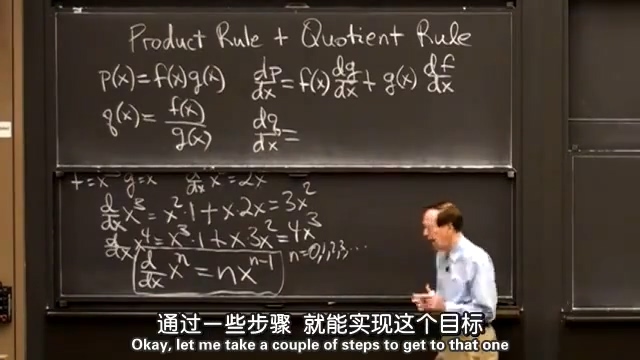 Product Rule + Quotient Rule
p(x) = f(x) g(x) dp/dx = f(x) dg/dx + g(x) df/dx
q(x) = f(x)/g(x) dq/dx =
g=x d/dx x² = 2x
d/dx x³ = x²·1 + x·2x = 3x²
d/dx x⁴ = x³·1 + x·3x² = 4x³
d/dx xⁿ = nxⁿ⁻¹ n=0,1,2,3,...
通过一些步骤 就能实现这个目标
Okay, let me take a couple of steps to get to that one